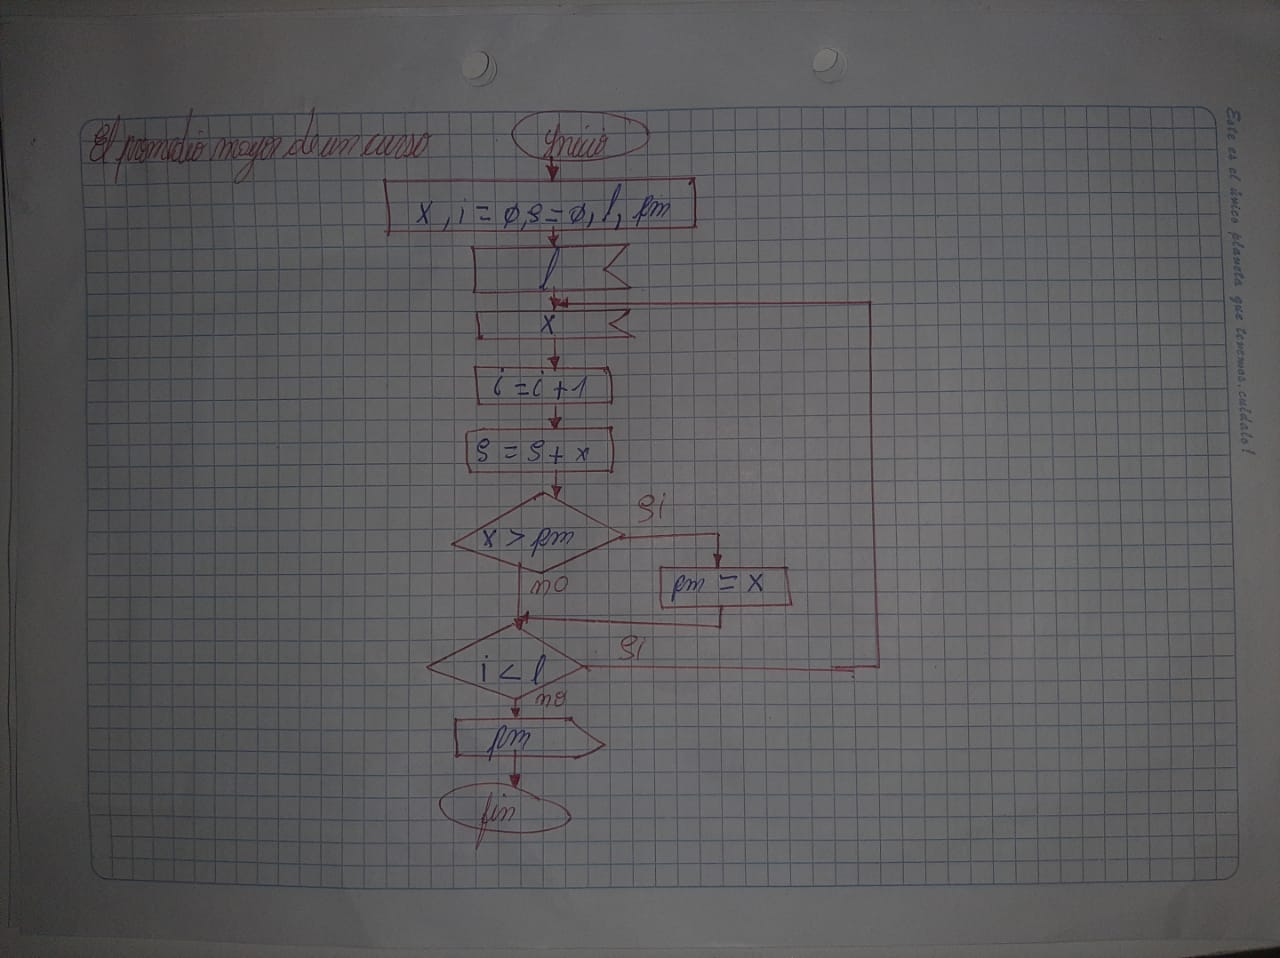 El promedio mayor de un curso
Inicio
x, i = 0, s = 0, l, pm
l
x
i = i + 1
s = s + x
x > pm
si
no
pm = x
i < l
si
no
pm
fin
Este es el único planeta que tenemos, cuídalo!